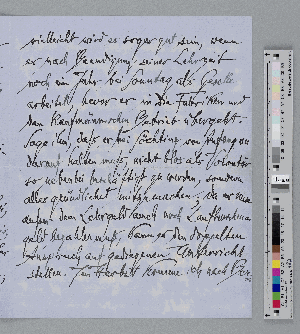 vielleicht wird es sogar gut sein, wenn
er nach Beendigung seiner Lehrzeit
noch ein Jahr bei Sonntag als Geselle
arbeitet, bevor er in die Fabriken und
den Kaufmännischen Betrieb übergeht.
Sage ihm, daß er bei von Anfang an
darauf halten muß, nicht blos als Volontär
so nebenbei beschäftigt zu werden, sondern
alles gründlichst mitzumachen; da er
außer dem Lehrgeld auch noch
geld bezahlen muß, kann er den doppelten
Anspruch auf gediegenen Unterricht
stellen. Für Herbst komme ich nach